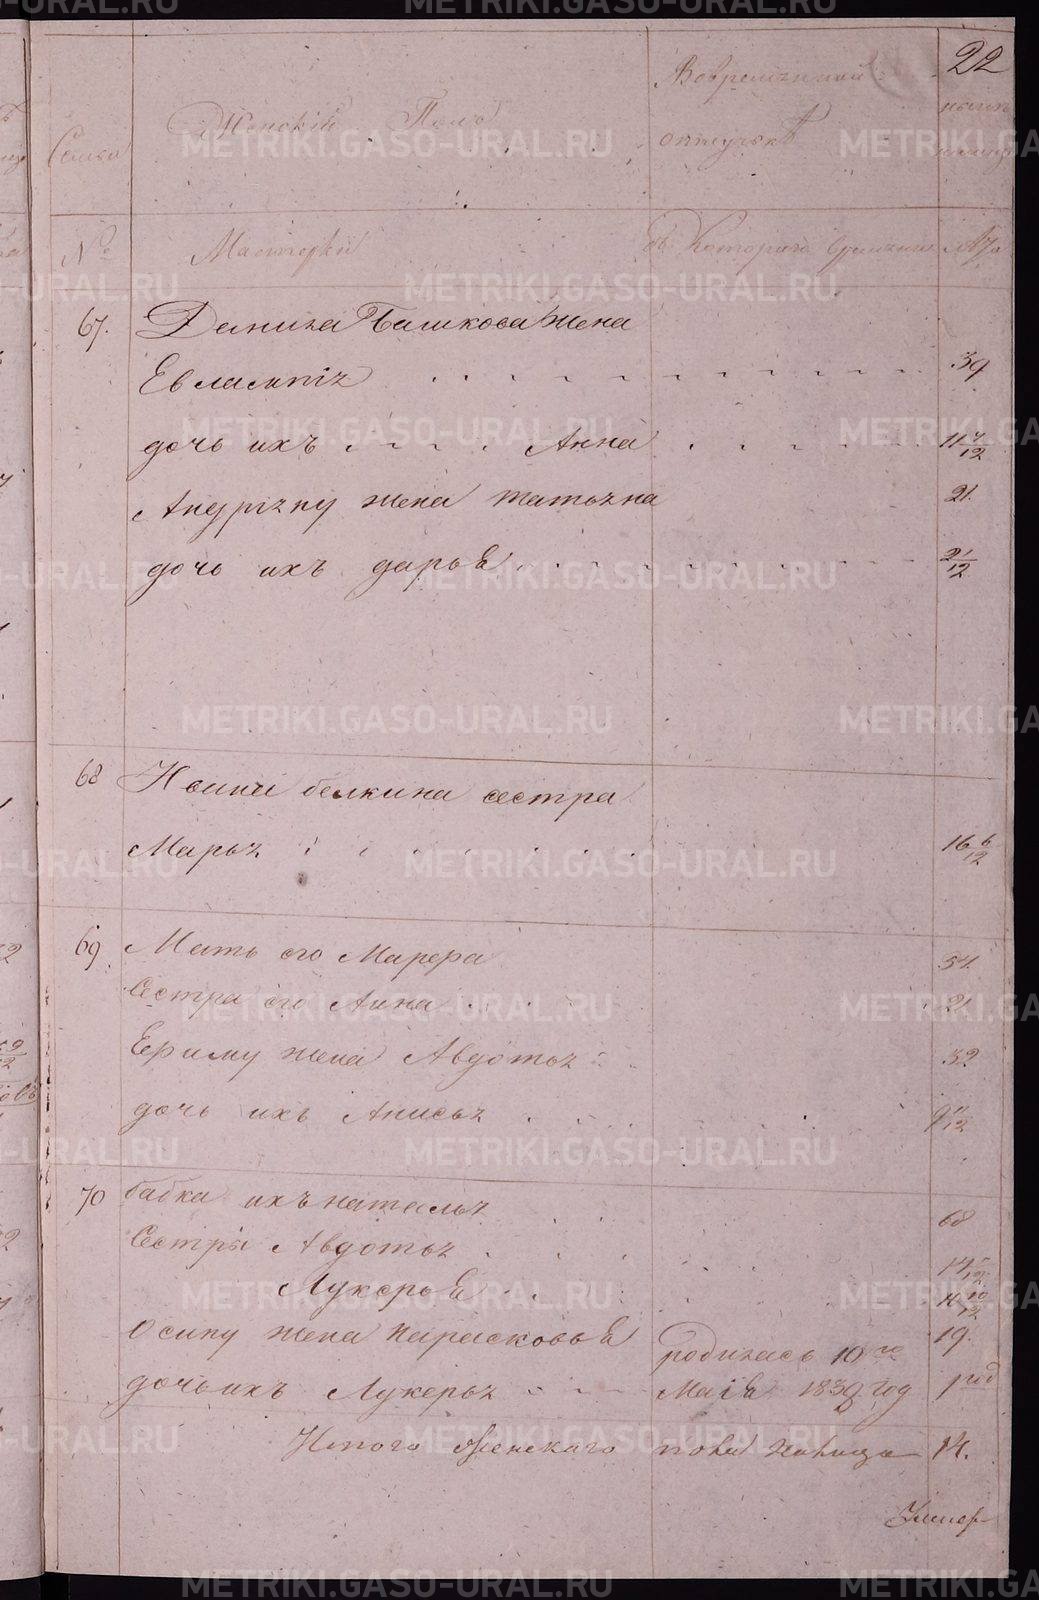 22
Семьи
Женскій Полъ
Вовременной
отлучкѣ
нынѣ
на лицо
№
Мастерки
съ Котораго времени
Лѣта
67. Данила Башкова жена
Евлампія 39
дочь ихъ Анна 11 7/12
Андріяну жена татьяна 21.
дочь ихъ дарья 2 1/12
68 Ивана белкина сестра
Марья 16 6/12
69 Мать его Марфа 54.
Сестра его Анна 21.
Ефиму жена Авдотья 32
дочь ихъ Анисья 9 11/12
70 бабка ихъ наталья 68
Сестры Авдотья
Лукерья 11 10/12
Осипу жена парасковья 19.
родилась 10го
дочь ихъ Лукерья Маія 1832 год 1 год
Итого женскаго пола налицо 14.
METRIKI.GASO-URAL.RU